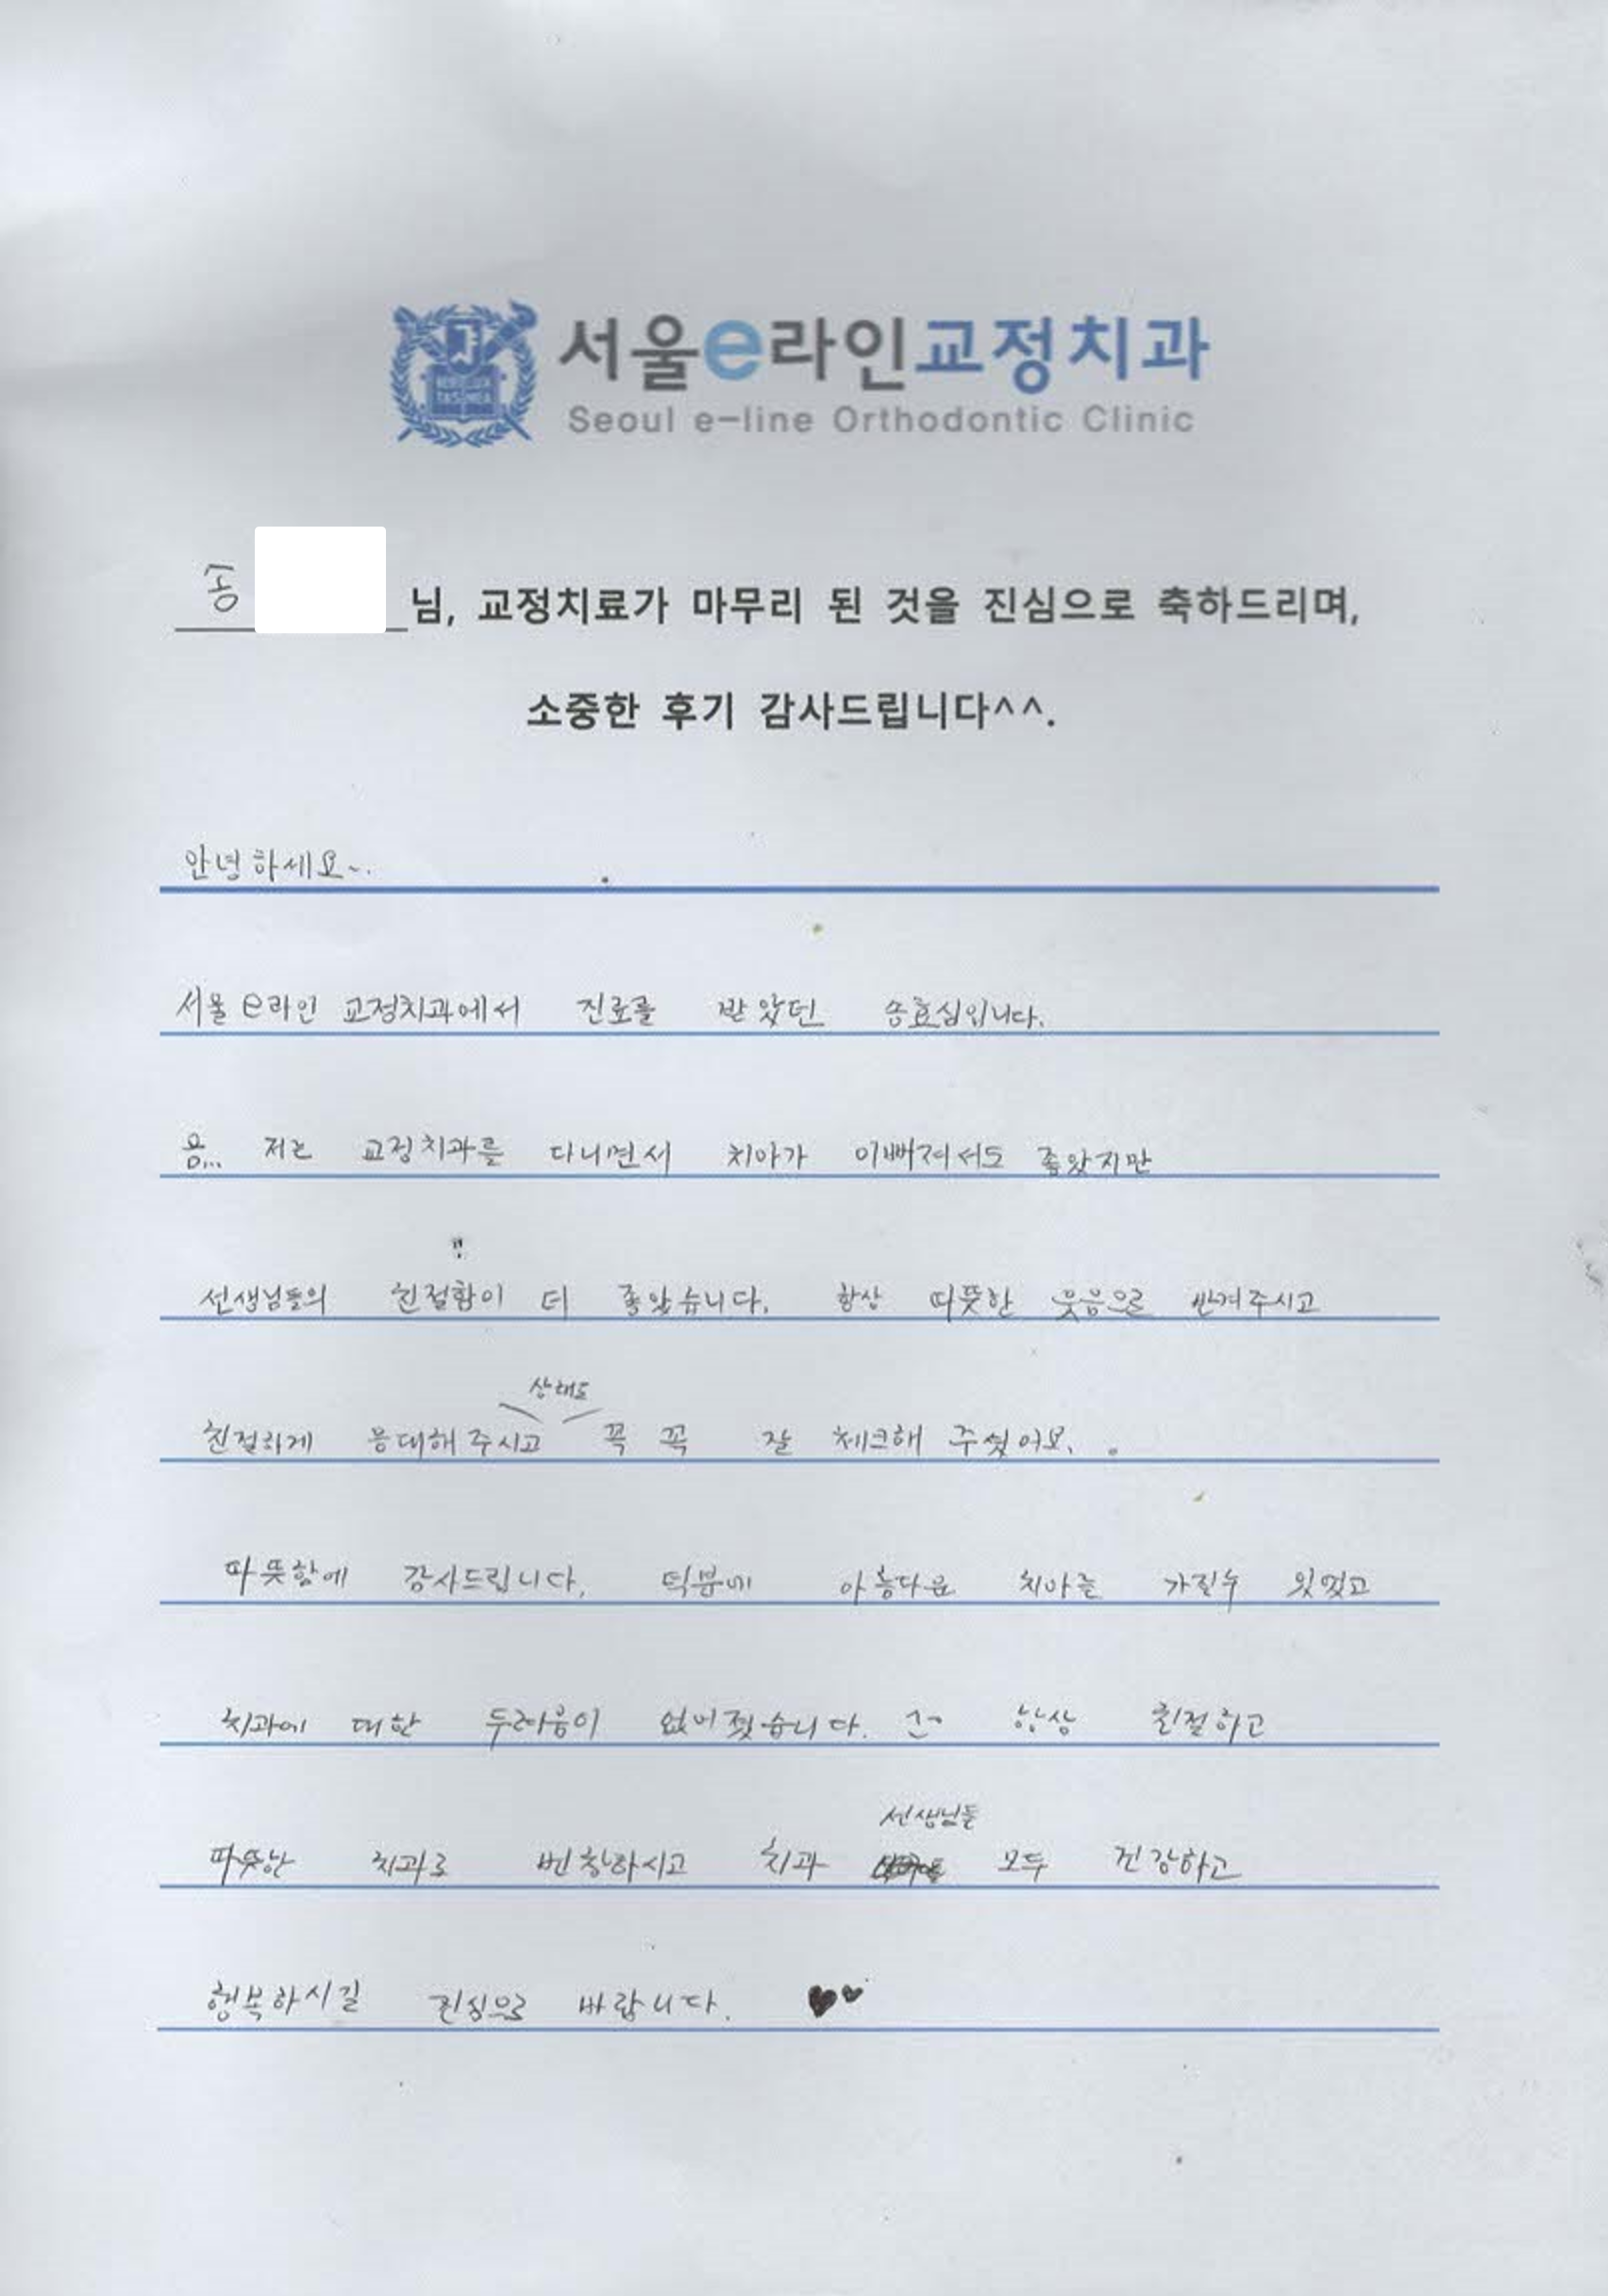 서울e라인교정치과
Seoul e-line Orthodontic Clinic
송 님, 교정치료가 마무리 된 것을 진심으로 축하드리며,
소중한 후기 감사드립니다^^.
안녕하세요~.
서울 e라인 교정치과에서 진료를 받았던 송효심입니다.
음... 저는 교정치과를 다니면서 치아가 이뻐져서도 좋았지만
선생님들의 친절함이 더 좋았습니다. 항상 따뜻한 웃음으로 반겨주시고
!!
친절하게 응대해 주시고 상태도 꼭 꼭 잘 체크해 주셨어요.
따뜻함에 감사드립니다. 덕분에 아름다운 치아를 가질수 있었고
치과에 대한 두려움이 없어졌습니다. 항상 친절하고
따뜻한 치과로 번창하시고 치과 선생님들 모두 건강하고
행복하시길 진심으로 바랍니다. ♥♥